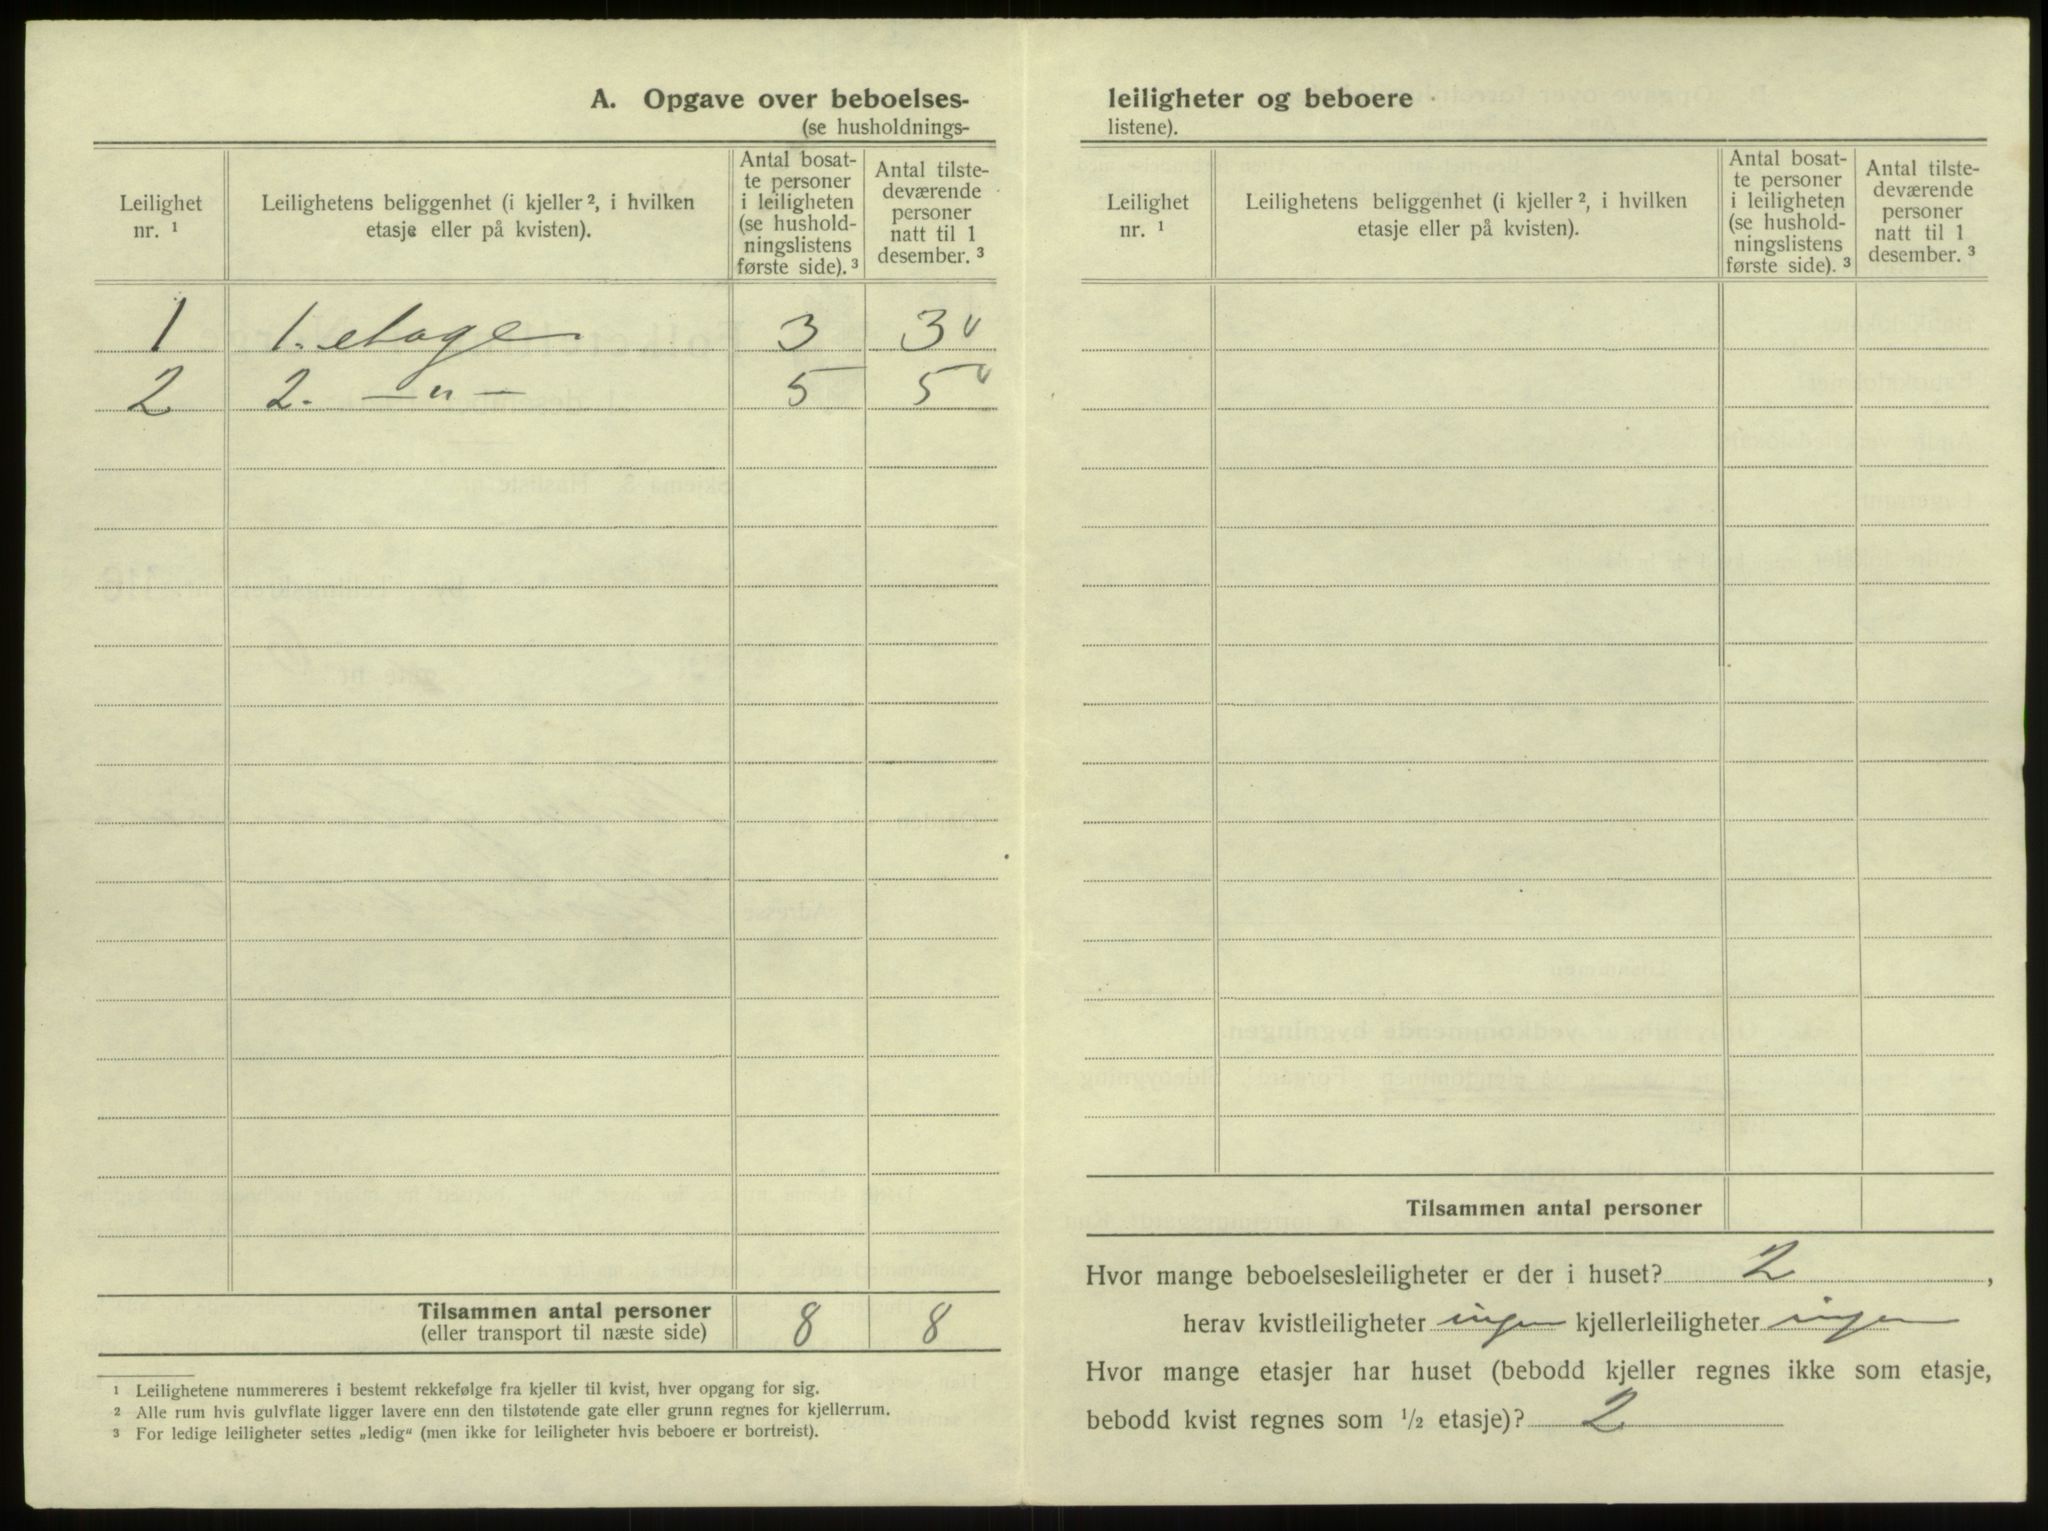 A. Opgave over beboelses-
(se husholdnings-
Leilighet nr. ¹
Leilighetens beliggenhet (i kjeller ², i hvilken etasje eller på kvisten).
Antal bosat-
te personer
i leiligheten
(se hushold-
ningslistens
første side). ³
Antal tilste-
deværende
personer
natt til 1
desember. ³
1 1. etage 3 3 v
2 2. —„— 5 5 v
Tilsammen antal personer 8 8
(eller transport til næste side)
¹ Leilighetene nummereres i bestemt rekkefølge fra kjeller til kvist, hver opgang for sig.
² Alle rum hvis gulvflate ligger lavere enn den tilstøtende gate eller grunn regnes for kjellerrum.
³ For ledige leiligheter settes „ledig“ (men ikke for leiligheter hvis beboere er bortreist).
leiligheter og beboere
listene).
Leilighet nr. ¹
Leilighetens beliggenhet (i kjeller ², i hvilken etasje eller på kvisten).
Antal bosat-
te personer
i leiligheten
(se hushold-
ningslistens
første side). ³
Antal tilste-
deværende
personer
natt til 1
desember. ³
Tilsammen antal personer
Hvor mange beboelsesleiligheter er der i huset? 2,
herav kvistleiligheter ingen kjellerleiligheter ingen
Hvor mange etasjer har huset (bebodd kjeller regnes ikke som etasje,
bebodd kvist regnes som ½ etasje)? 2